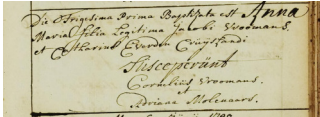 Die Trigesima Prima Baptizata est Anna
Maria filia Legitima Jacobi Vroomans.
et Catharina Everden Cruijslandi
Susceperunt
Cornelius Vroomans.
et
Adriana Molenaars.